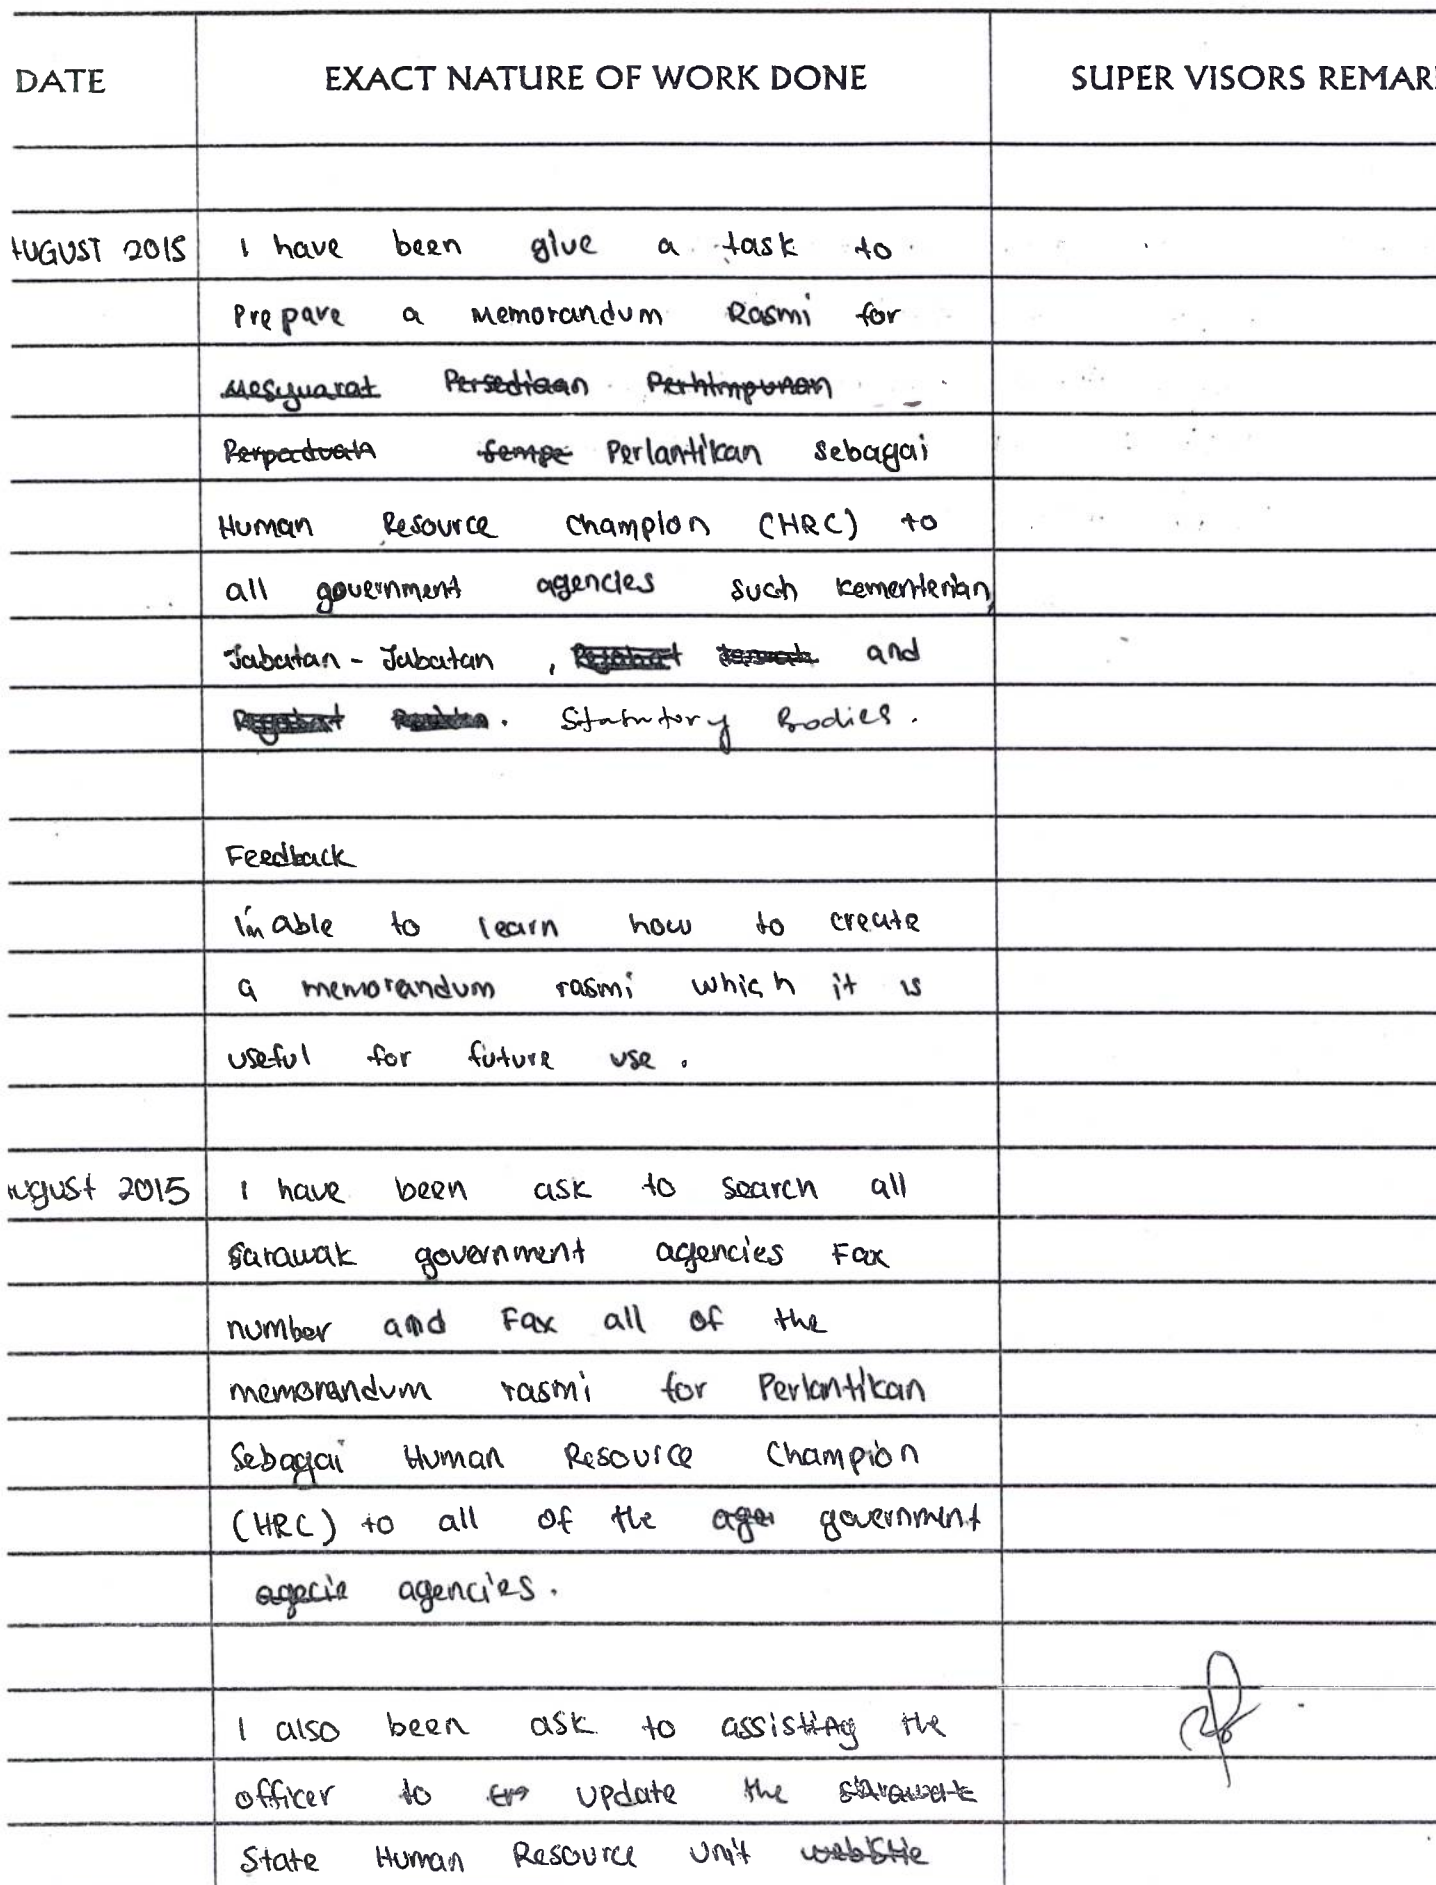 DATE EXACT NATURE OF WORK DONE SUPER VISORS REMAR
UGUST 2015 I have been give a task to
Prepare a Memorandum Rasmi for
Mesyuarat Persediaan Perhimpunan
Perpaduan sempe Perlantikan sebagai
Human Resource Champion (HRC) to
all government agencies such kementerian,
Jabatan - Jabatan , and
. Statutory Bodies.
Feedback
I'm able to learn how to create
a memorandum rasmi which it is
useful for future use .
ugust 2015 I have been ask to search all
Sarawak government agencies Fax
number and Fax all of the
memorandum rasmi for Perlantikan
Sebagai Human Resource Champion
(HRC) to all of the age government
agecie agencies .
I also been ask to assisting the
officer to update the sarawak
State Human Resource Unit website